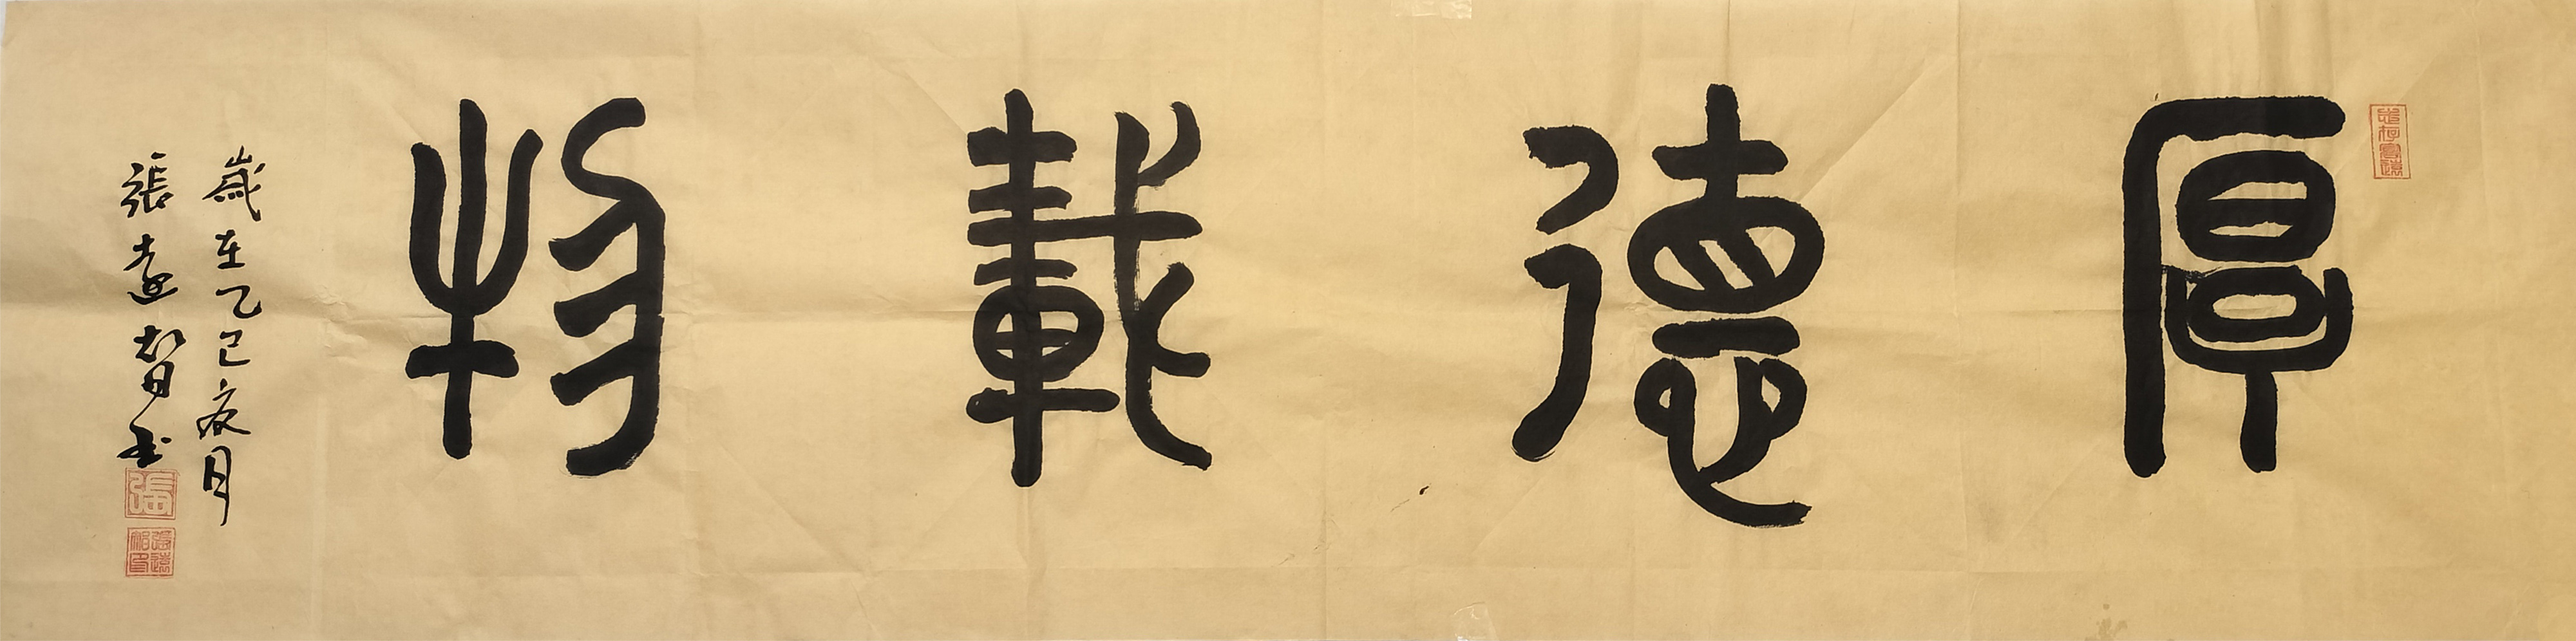 厚德載物
歲在乙巳夜月
張遠智書
張